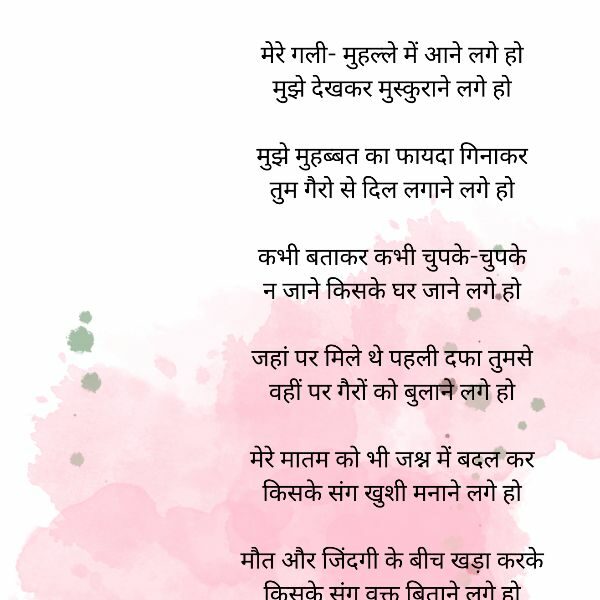 मेरे गली- मुहल्ले में आने लगे हो
मुझे देखकर मुस्कुराने लगे हो
मुझे मुहब्बत का फायदा गिनाकर
तुम गैरो से दिल लगाने लगे हो
कभी बताकर कभी चुपके-चुपके
न जाने किसके घर जाने लगे हो
जहां पर मिले थे पहली दफा तुमसे
वहीं पर गैरों को बुलाने लगे हो
मेरे मातम को भी जश्न में बदल कर
किसके संग खुशी मनाने लगे हो
मौत और जिंदगी के बीच खड़ा करके
किसके संग वक्त बिताने लगे हो